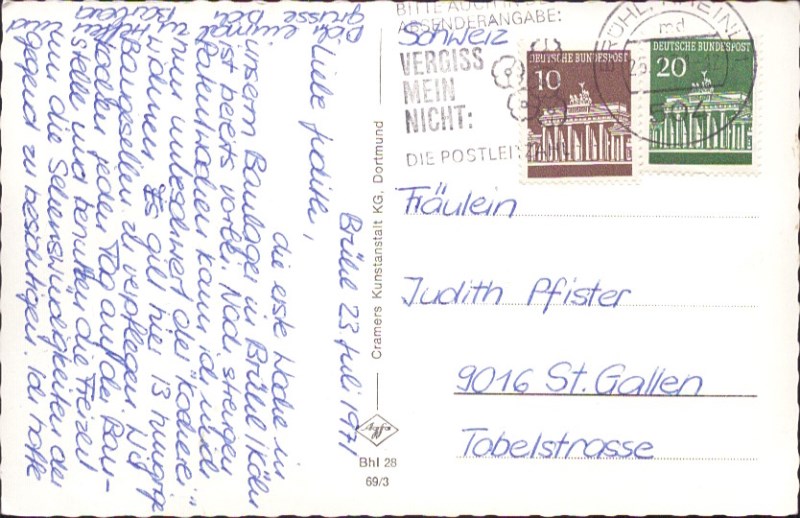 Brühl 23. Juli 1971
Liebe Judith,
die erste Woche in
unserm Baulager in Brühl/Köln
ist bereits vorbei. Nach strengen
Patentwochen kann ich mich
nun unbeschwert der "Kocherei"
widmen. Es gilt hier 13 hungrige
Baugesellen zu verpflegen. Wir
helfen jeden Tag auf der Bau-
stelle und benutzen die Freizeit
um die Sehenswürdigkeiten der
Gegend zu besichtigen. Ich hoffe
Dich einmal
grüsse Dich
Barbara
Cramers Kunstanstalt KG, Dortmund
Bhl 28
69/3
BITTE AUCH IN DER
ABSENDERANGABE:
VERGISS
MEIN
NICHT:
DIE POSTLEITZAHL
BRÜHL, RHEINL
md
DEUTSCHE BUNDESPOST
10
DEUTSCHE BUNDESPOST
20
Schweiz
Fräulein
Judith Pfister
9016 St. Gallen
Tobelstrasse